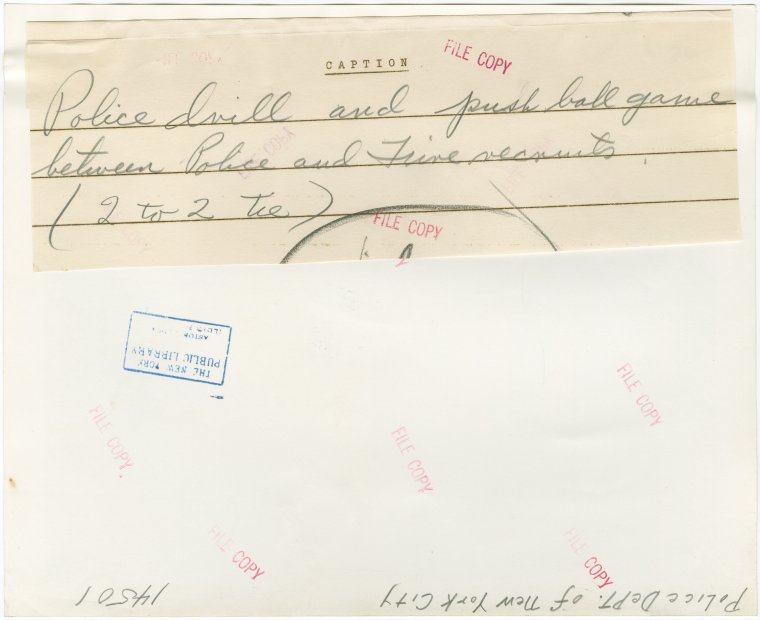 CAPTION
FILE COPY
Police drill and push ball game
between Police and Fire recruits.
(2 to 2 tie)
FILE COPY
FILE COPY
FILE COPY
THE NEW YORK
PUBLIC LIBRARY
ASTOR
FILE COPY
FILE COPY
FILE COPY
FILE COPY
FILE COPY
Police Dept. of New York City
14501